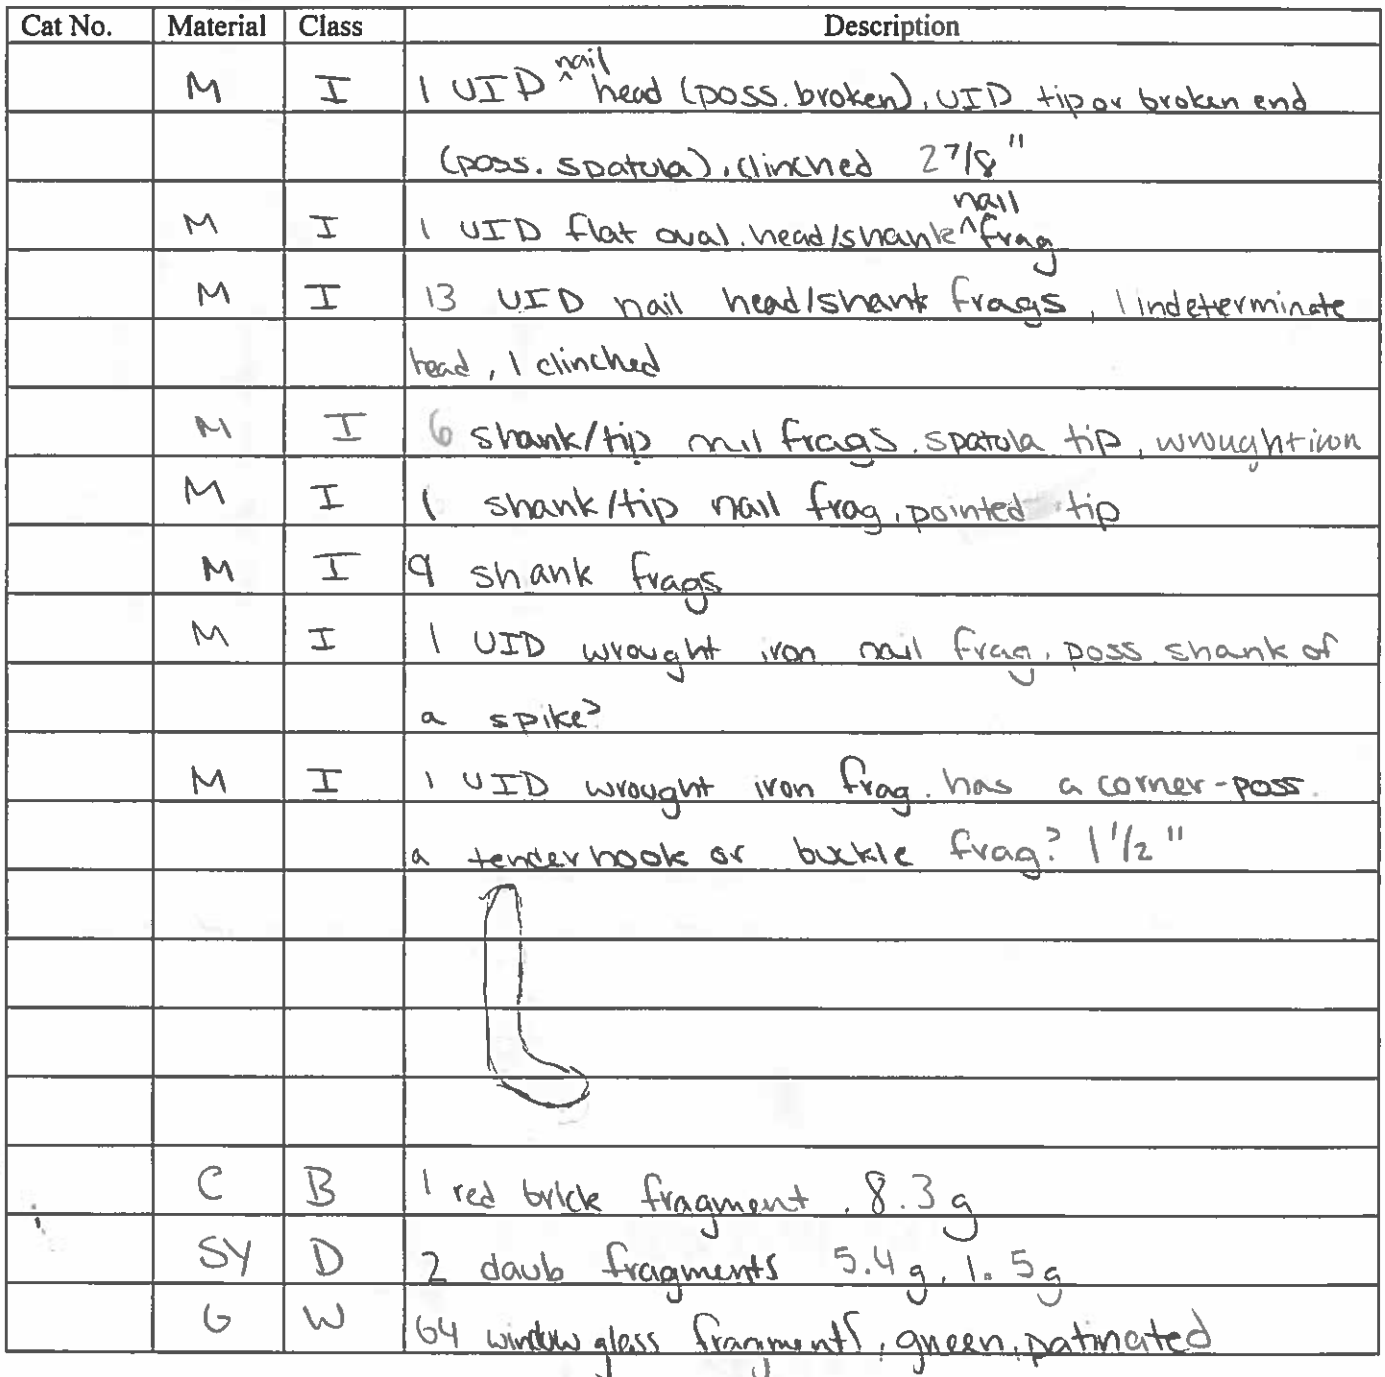 Cat No. Material Class Description
M I 1 UID ^nail head (poss. broken), UID tip or broken end
(poss. spatula), clinched 2 7/8"
M I 1 UID flat oval. head/shank ^nail frag
M I 13 UID nail head/shank frags, 1 indeterminate
head, 1 clinched
M I 6 shank/tip nail frags. spatula tip, wrought iron
M I 1 shank/tip nail frag, pointed tip
M I 9 shank frags
M I 1 UID wrought iron nail frag, poss. shank of
a spike?
M I 1 UID wrought iron frag. has a corner - poss.
a tenderhook or buckle frag? 1 1/2"
C B 1 red brick fragment, 8.3 g
SY D 2 daub fragments 5.4 g, 1.5 g
G W 64 window glass fragments, green, patinated